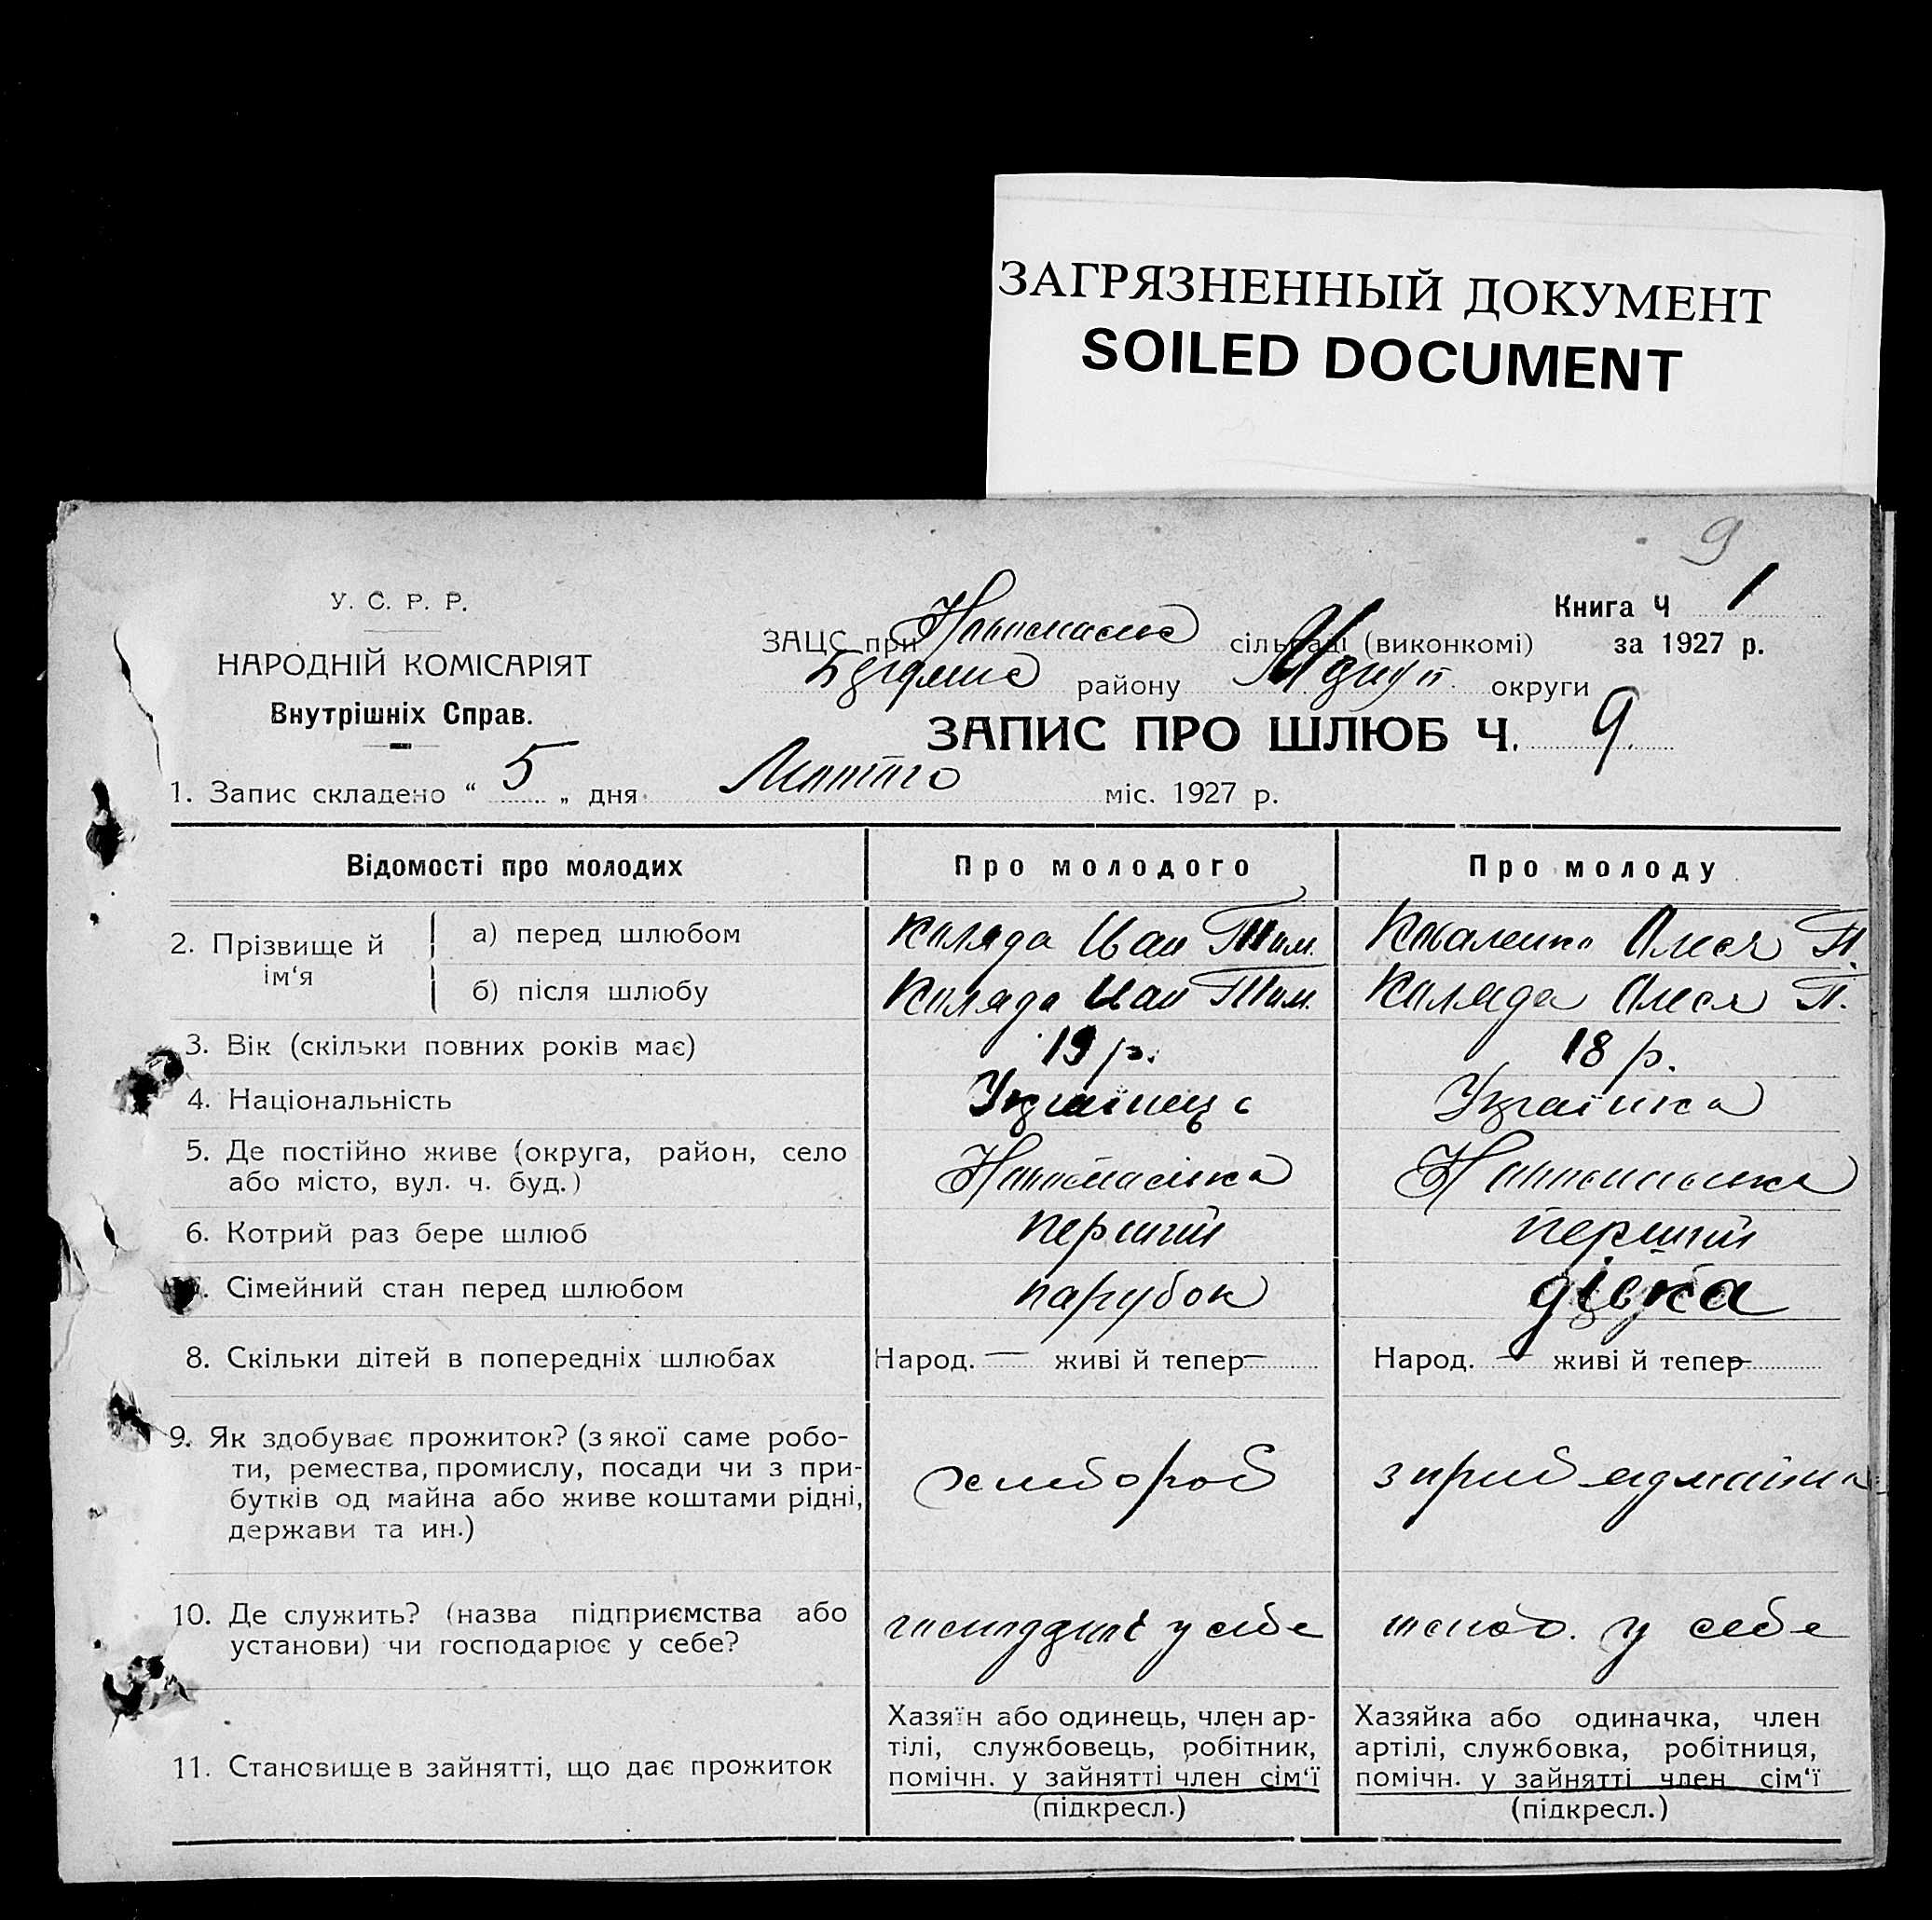 ЗАГРЯЗНЕННЫЙ ДОКУМЕНТ
SOILED DOCUMENT
9
У. С. Р. Р.
НАРОДНІЙ КОМІСАРІЯТ
Внутрішніх Справ.
Книга Ч 1
ЗАЦС при сільраді (виконкомі) за 1927 р.
району округи
ЗАПИС ПРО ШЛЮБ Ч. 9.
1. Запис складено “ 5 „ дня Лютого міс. 1927 р.
Відомості про молодих Про молодого Про молоду
2. Прізвище й ім‘я
а) перед шлюбом Коляда Иван Тим. Коваленко Олеся П.
б) після шлюбу Коляда Иван Тим. Коляда Олеся П.
3. Вік (скільки повних років має) 19 р. 18 р.
4. Національність Українець Українка
5. Де постійно живе (округа, район, село
або місто, вул. ч. буд.)
6. Котрий раз бере шлюб перший перший
7. Сімейний стан перед шлюбом парубок дівка
8. Скільки дітей в попередніх шлюбах Народ. — живі й тепер — Народ. — живі й тепер —
9. Як здобуває прожиток? (з якої саме робо-
ти, ремества, промислу, посади чи з при-
бутків од майна або живе коштами рідні,
держави та ин.)
хлибороб
з приб од майна
10. Де служить? (назва підприємства або
установи) чи господарює у себе?
господарює у себе
господ. у себе
11. Становище в зайнятті, що дає прожиток
Хазяїн або одинець, член ар-
тілі, службовець, робітник,
помічн. у зайнятті член сім‘ї
(підкресл.)
Хазяйка або одиначка, член
артілі, службовка, робітниця,
помічн. у зайнятті член сім‘ї
(підкресл.)